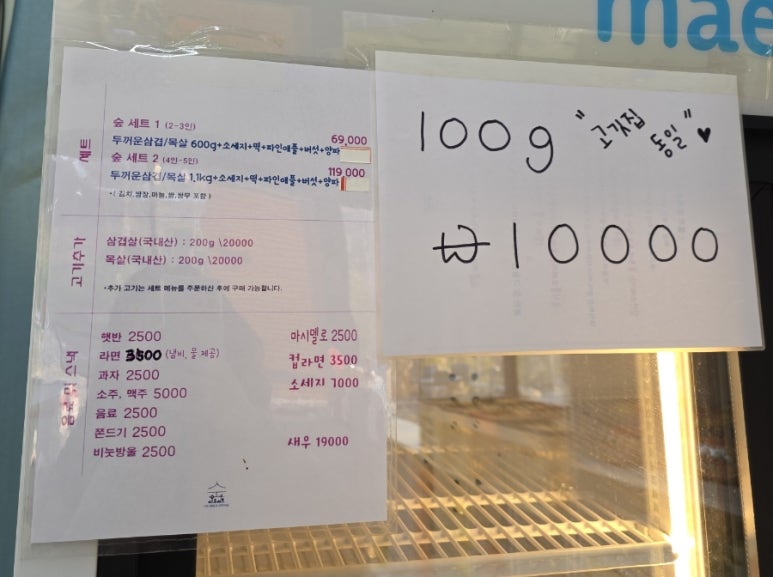 mae
세트
숲 세트 1 (2-3인)
두꺼운삼겹/목살 600g+소세지+떡+파인애플+버섯+양파
69,000
숲 세트 2 (4인-5인)
두꺼운삼겹/목살 1.1kg+소세지+떡+파인애플+버섯+양파
119,000
*( 김치,쌈장,마늘,쌈,쌈무 포함 )
고기추가
삼겹살(국내산) : 200g \20000
목살(국내산) : 200g \20000
*추가 고기는 세트 메뉴를 주문하신 후에 구매 가능합니다.
음료 및 스낵
햇반 2500
라면 3500 (냄비, 물 제공)
과자 2500
소주, 맥주 5000
음료 2500
쫀드기 2500
비눗방울 2500
마시멜로 2500
컵라면 3500
소세지 7000
새우 19000
100g "고깃집
동일"♥
₩10000